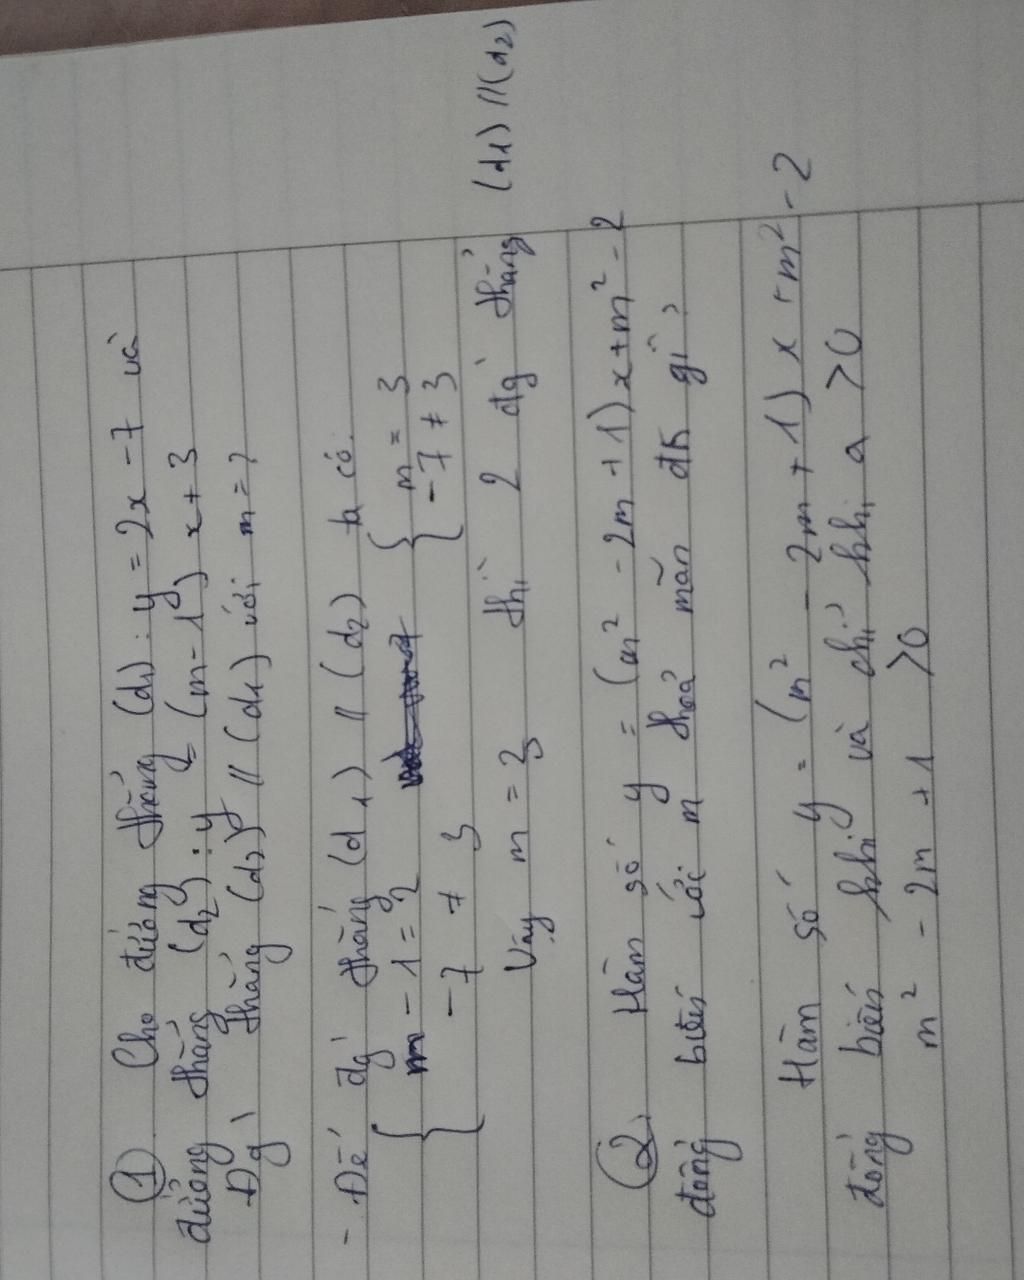 ① Cho đường thẳng (d1) : y = 2x - 7 và
đường thẳng (d2) : y = (m - 1) x + 3
Đg thẳng (d2) // (d1) với m = ?
- Để đg thẳng (d1) // (d2) ta có.
{ m - 1 = 2 { m = 3
-7 ≠ 3 -7 ≠ 3
Vậy m = 3 thì 2 đg thẳng (d1) // (d2)
② Hàm số y = (m² - 2m + 1) x + m² - 2
đồng biến với m thoả mãn đk gì ?
Hàm số y = (m² - 2m + 1) x + m² - 2
đồng biến khi và chỉ khi a > 0
m² - 2m + 1 > 0